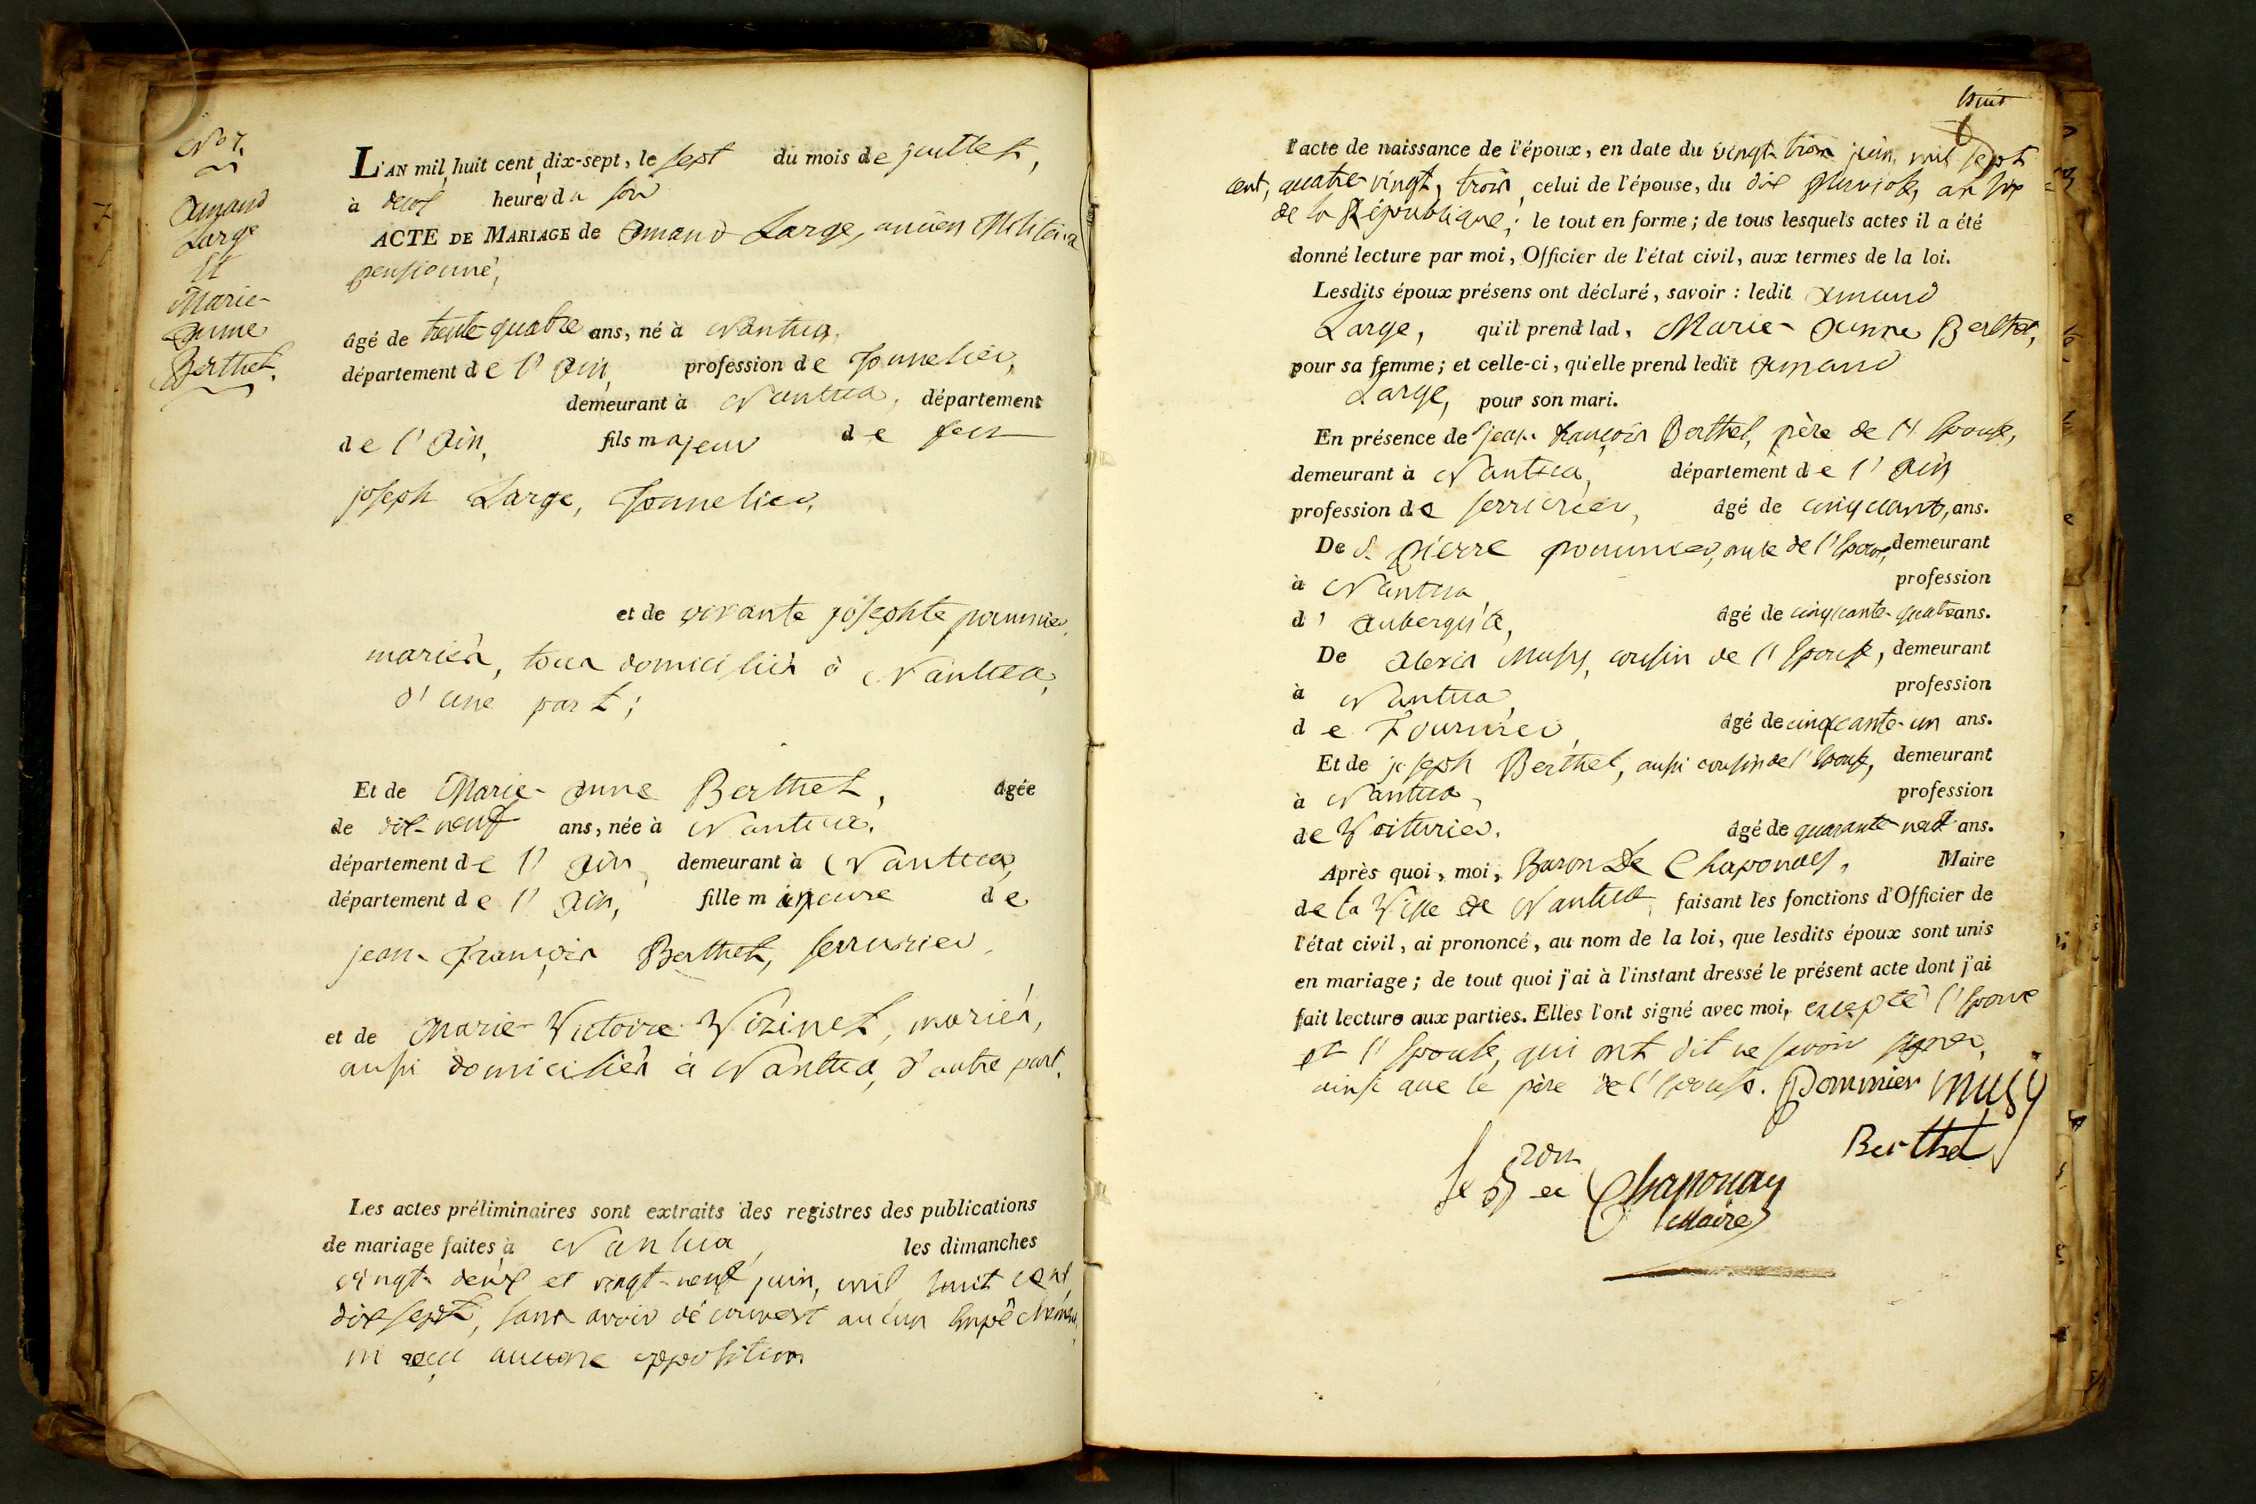 No 7.
Amand
Large
Et
Marie-
Anne
Berthet.
7
L'AN mil huit cent dix-sept, le sept du mois de juillet,
à deux heures du soir
ACTE DE MARIAGE de Amand Large, ancien Militaire
pensionné,
âgé de trente quatre ans, né à Nantua,
département de l'Ain, profession de Tonnelier,
demeurant à Nantua, département
de l'Ain, fils majeur de feu
joseph Large, Tonnelier,
et de vivante josephte pommier,
mariés, tous domiciliés à Nantua,
d'une part;
Et de Marie-Anne Berthet, âgée
de dix-neuf ans, née à Nantua,
département de l'Ain, demeurant à Nantua,
département de l'Ain, fille mineure de
jean-françois Berthet, serrurier,
et de Marie-Victoire Vizinet, mariés,
aussi domiciliés à Nantua, d'autre part.
Les actes préliminaires sont extraits des registres des publications
de mariage faites à Nantua, les dimanches
vingt-deux et vingt-neuf juin, mil huit cent
dix sept, sans avoir découvert aucun Empêchement,
ni reçu aucune opposition
huit
l'acte de naissance de l'époux, en date du vingt-trois juin, mil sept
cent, quatre-vingt, trois, celui de l'épouse, du dix pluviose, an six
de la République; le tout en forme; de tous lesquels actes il a été
donné lecture par moi, Officier de l'état civil, aux termes de la loi.
Lesdits époux présens ont déclaré, savoir : ledit Amand
Large, qu'il prend lad. Marie-Anne Berthet,
pour sa femme; et celle-ci, qu'elle prend ledit Amand
Large, pour son mari.
En présence de jean françois Berthet, père de l'Epouse,
demeurant à Nantua, département de l'Ain
profession de serrurier, âgé de cinquante, ans.
De S. Pierre pommier, oncle de l'Epoux, demeurant
à Nantua, profession
d'Aubergiste, âgé de cinquante-quatre ans.
De Alexis Musy, cousin de l'Epouse, demeurant
à Nantua, profession
de Fournier, âgé de cinquante-un ans.
Et de joseph Berthet, aussi cousin de l'Epouse, demeurant
à Nantua, profession
de Voiturier. âgé de quarante neuf ans.
Après quoi, moi, Baron De Chaponay, Maire
de la Ville de Nantua, faisant les fonctions d'Officier de
l'état civil, ai prononcé, au nom de la loi, que lesdits époux sont unis
en mariage; de tout quoi j'ai à l'instant dressé le présent acte dont j'ai
fait lecture aux parties. Elles l'ont signé avec moi, excepté l'Epoux
et l'Epouse, qui ont dit ne savoir signer,
ainsi que le père de l'Epouse. Pommier Musy
Berthet
le Bon de Chaponay
Maire